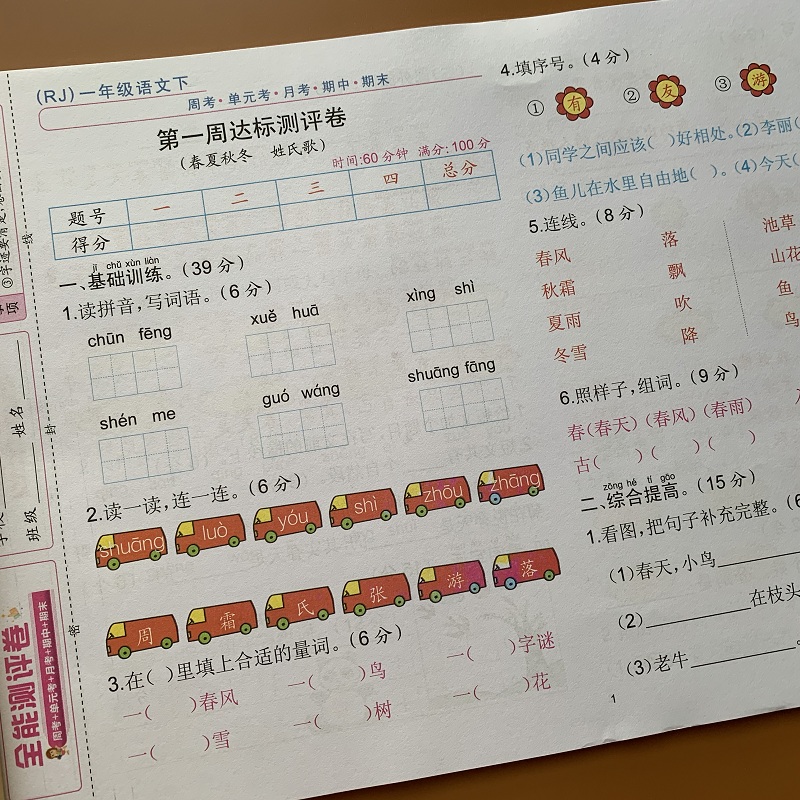 (RJ)一年级语文下
周考·单元考·月考·期中·期末
第一周达标测评卷
(春夏秋冬 姓氏歌)
时间:60分钟 满分:100分
题号 一 二 三 四 总分
得分
jī chǔ xùn liàn
一、基础训练。(39分)
1.读拼音,写词语。(6分)
chūn fēng xuě huā xìng shì
shén me guó wáng shuāng fāng
2.读一读,连一连。(6分)
shuāng luò yóu shì zhōu zhāng
周 霜 氏 张 游 落
3.在( )里填上合适的量词。(6分)
一( )春风 一( )鸟 一( )字谜
一( )雪 一( )树 一( )花
4.填序号。(4分)
① 有 ② 友 ③ 游
(1)同学之间应该( )好相处。(2)李丽(
(3)鱼儿在水里自由地( )。(4)今天(
5.连线。(8分)
春风 落 池草
秋霜 飘 山花
夏雨 吹 鱼
冬雪 降 鸟
6.照样子,组词。(9分)
春(春天)(春风)(春雨)
古( )( )( )
zōng hé tí gāo
二、综合提高。(15分)
1.看图,把句子补充完整。(6
(1)春天,小鸟
(2) 在枝头
(3)老牛 。
1
线
封
密
姓名
班级
全能测评卷
周考+单元考+月考+期中+期末